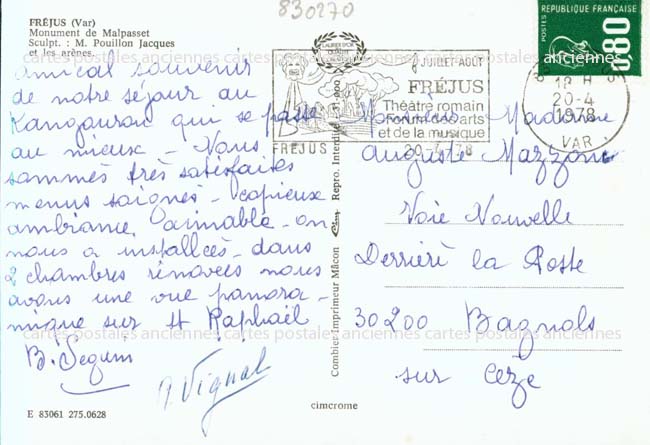 830270
FRÉJUS (Var)
Monument de Malpasset
Sculpt. : M. Pouillon Jacques
et les arènes.
amical souvenir
de notre séjour au
Kangourou qui se passe
au mieux - Nous
sommes très satisfaites
menus soignés - copieux
ambiance aimable - on
nous a installées dans
2 chambres rénovées nous
avons une vue panora-
mique sur St Raphaël
B. Segum
A. Vignal
E 83061 275.0628
Combier Imprimeur Mâcon Cim Repro. Interdite
cimcrome
LAURIER D'OR
QUALITÉ
FREJUS
JUILLET-AOÛT
FRÉJUS
Théâtre romain
Forum des arts
et de la musique
20-4-78
18 H
20-4
1978
VAR
POSTES
REPUBLIQUE FRANÇAISE
0,80
Monsieur Madame
Auguste Mazzoni
Voie Nouvelle
Derrière la Poste
30200 Bagnols
sur Ceze
cartes postales anciennes cartes postales anciennes cartes postales anciennes
cartes postales anciennes cartes postales anciennes cartes postales anciennes
cartes postales anciennes cartes postales anciennes cartes postales anciennes